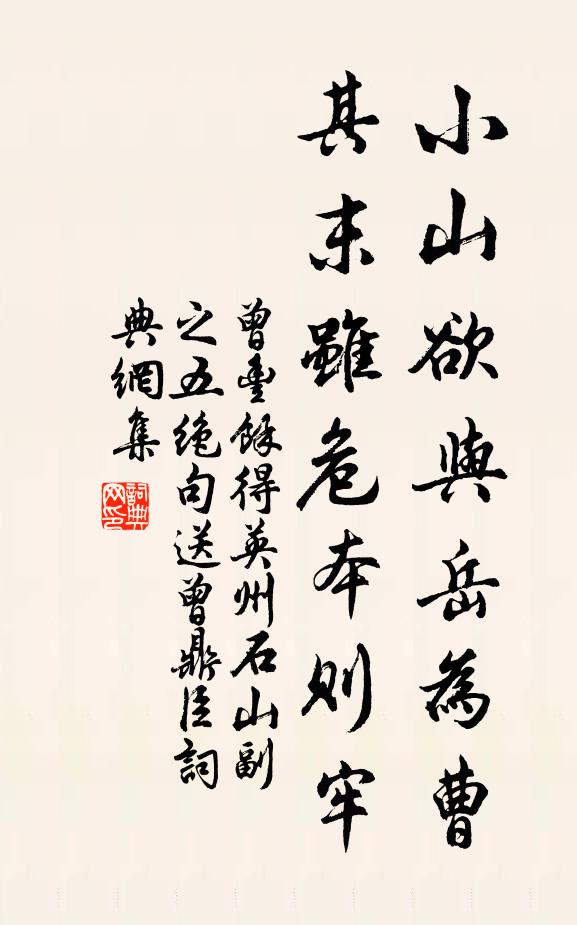 小山欲與岳為曹
其末雖危本則牢
曾豐餘得英州石山副
之五絕句送曾鼎臣詞
典網集
詞典
网印